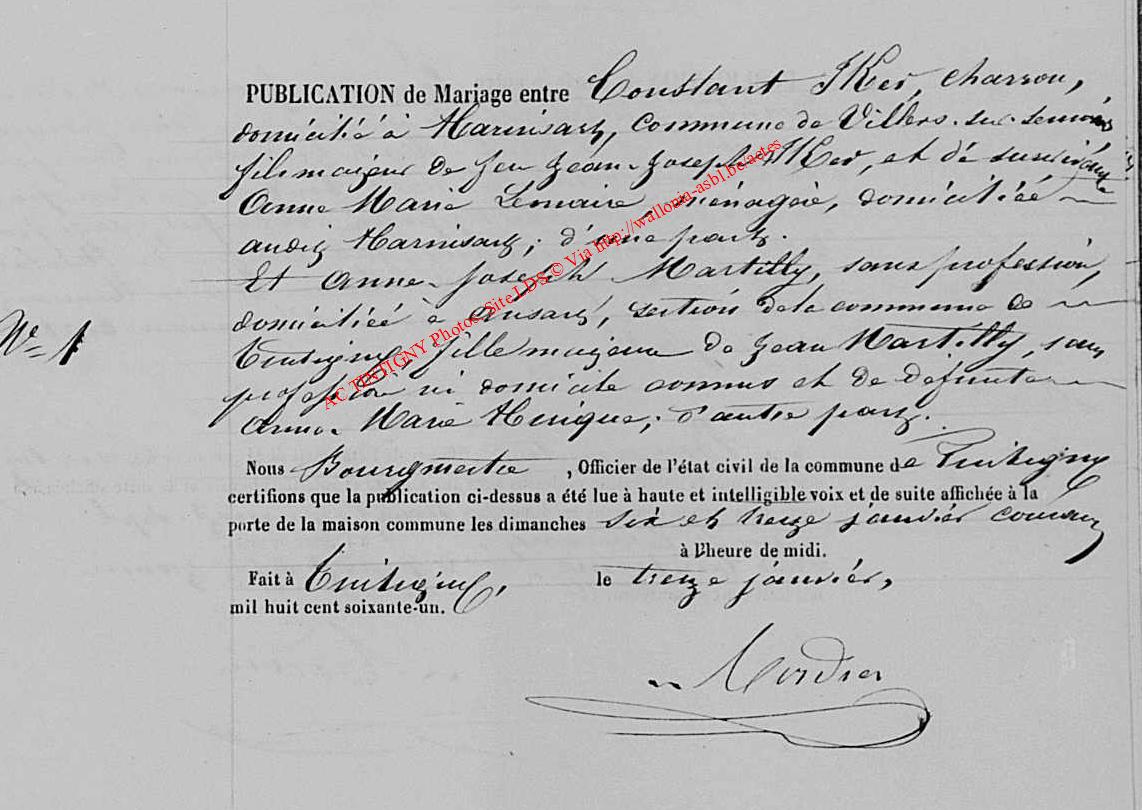 PUBLICATION de Mariage entre Constant IKer, charron,
domicilié à Harinsart, commune de Villers-sur-Semois
fils majeur de feu Jean-Joseph IKer, et de survivante
Anne Marie Lemaire, ménagère, domiciliée
audit Harinsart; d'une part.
Et Anne-Joseph Martilly, sans profession,
domiciliée à Ansart, section de la commune de
N° 1
Tintigny, fille majeure de Jean Martilly, sans
profession ni domicile connus et de défunte
Anne-Marie Henique; d'autre part.
Nous Bourgmestre, Officier de l'état civil de la commune de Tintigny
certifions que la publication ci-dessus a été lue à haute et intelligible voix et de suite affichée à la
porte de la maison commune les dimanches six et treize janvier courant
à l'heure de midi.
Fait à Tintigny, le treize janvier,
mil huit cent soixante-un.
AC TINTIGNY Photos Site LDS © Via http://wallonia-asbl.be/actes